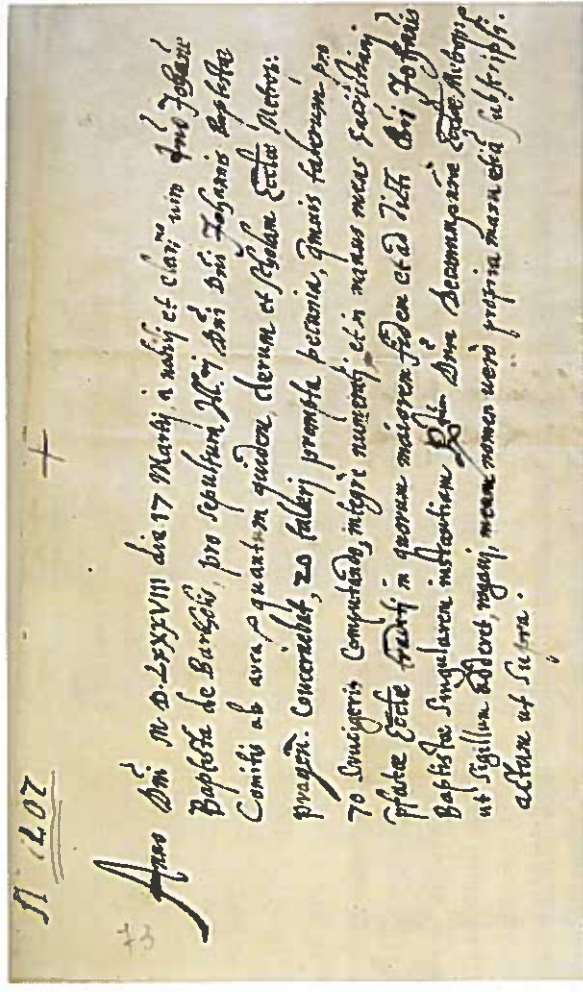 N 1202
+
73
Anno Dni M D LXXXVIII die 17 Martij, a nobij et clarmo viro Dno Johañ
Baptista de Bargelis, pro sepultura Ill.ij Dni Dni Johannis Baptista
Comitis ab arca quantum quidem, clerum et Ecctæ Metrop:
pragen. Concernebat, 20 tallarj prompta pecunia, quovis talerum pro
70 Crucigeris Computando, integre numeratj et in manus meas
pfatæ Ecctæ traditj in quorum maiorem fidem et ad dicti Dni Johañis
Baptistæ Singularem instantiam Dnm Decanum Ecctæ Metrop:
ut Sigillum adderet, rogavj, meum nomen vero propria manu etiã subscripsi.
actum ut Supra.